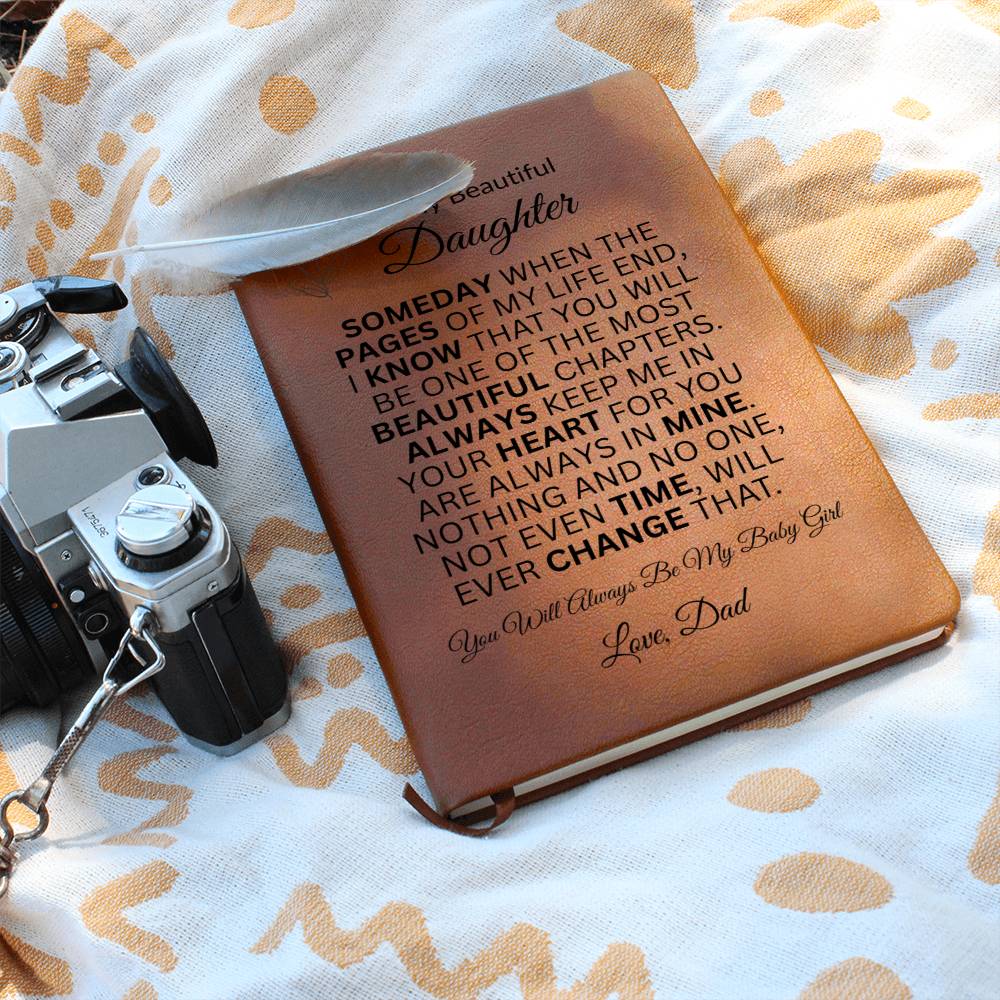 Beautiful
Daughter
SOMEDAY WHEN THE
PAGES OF MY LIFE END,
I KNOW THAT YOU WILL
BE ONE OF THE MOST
BEAUTIFUL CHAPTERS.
ALWAYS KEEP ME IN
YOUR HEART FOR YOU
ARE ALWAYS IN MINE.
NOTHING AND NO ONE,
NOT EVEN TIME, WILL
EVER CHANGE THAT.
You Will Always Be My Baby Girl
Love, Dad
367547A